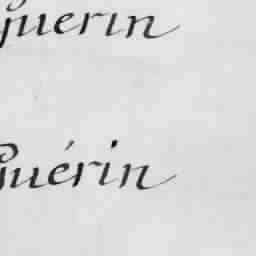 Guerin
Guérin